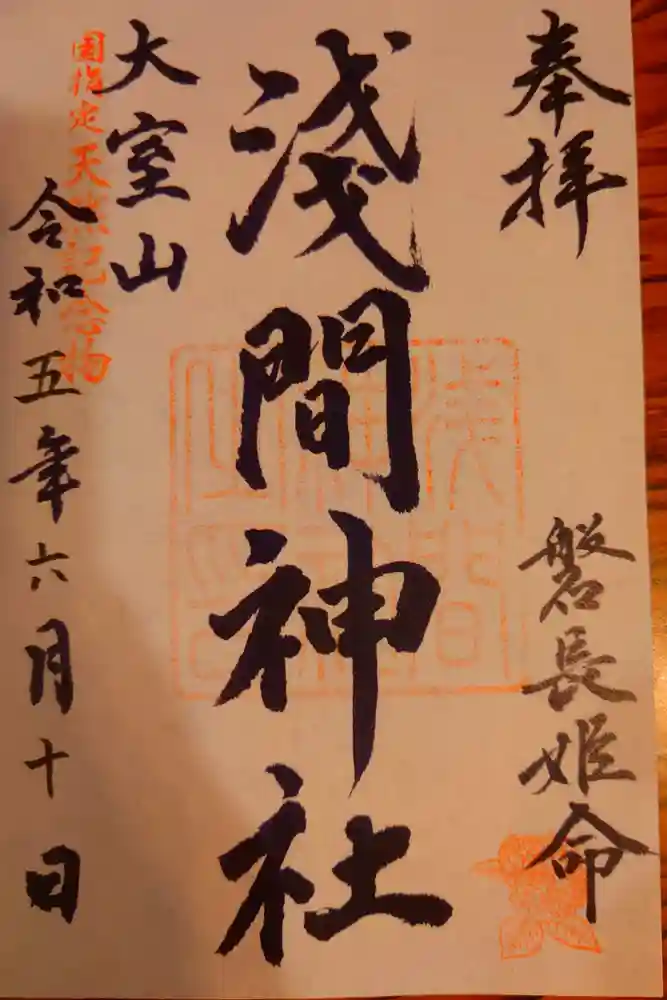 奉拝
磐長姫命
淺間神社
浅間神社之印
大室山
国指定天然記念物
令和五年六月十日